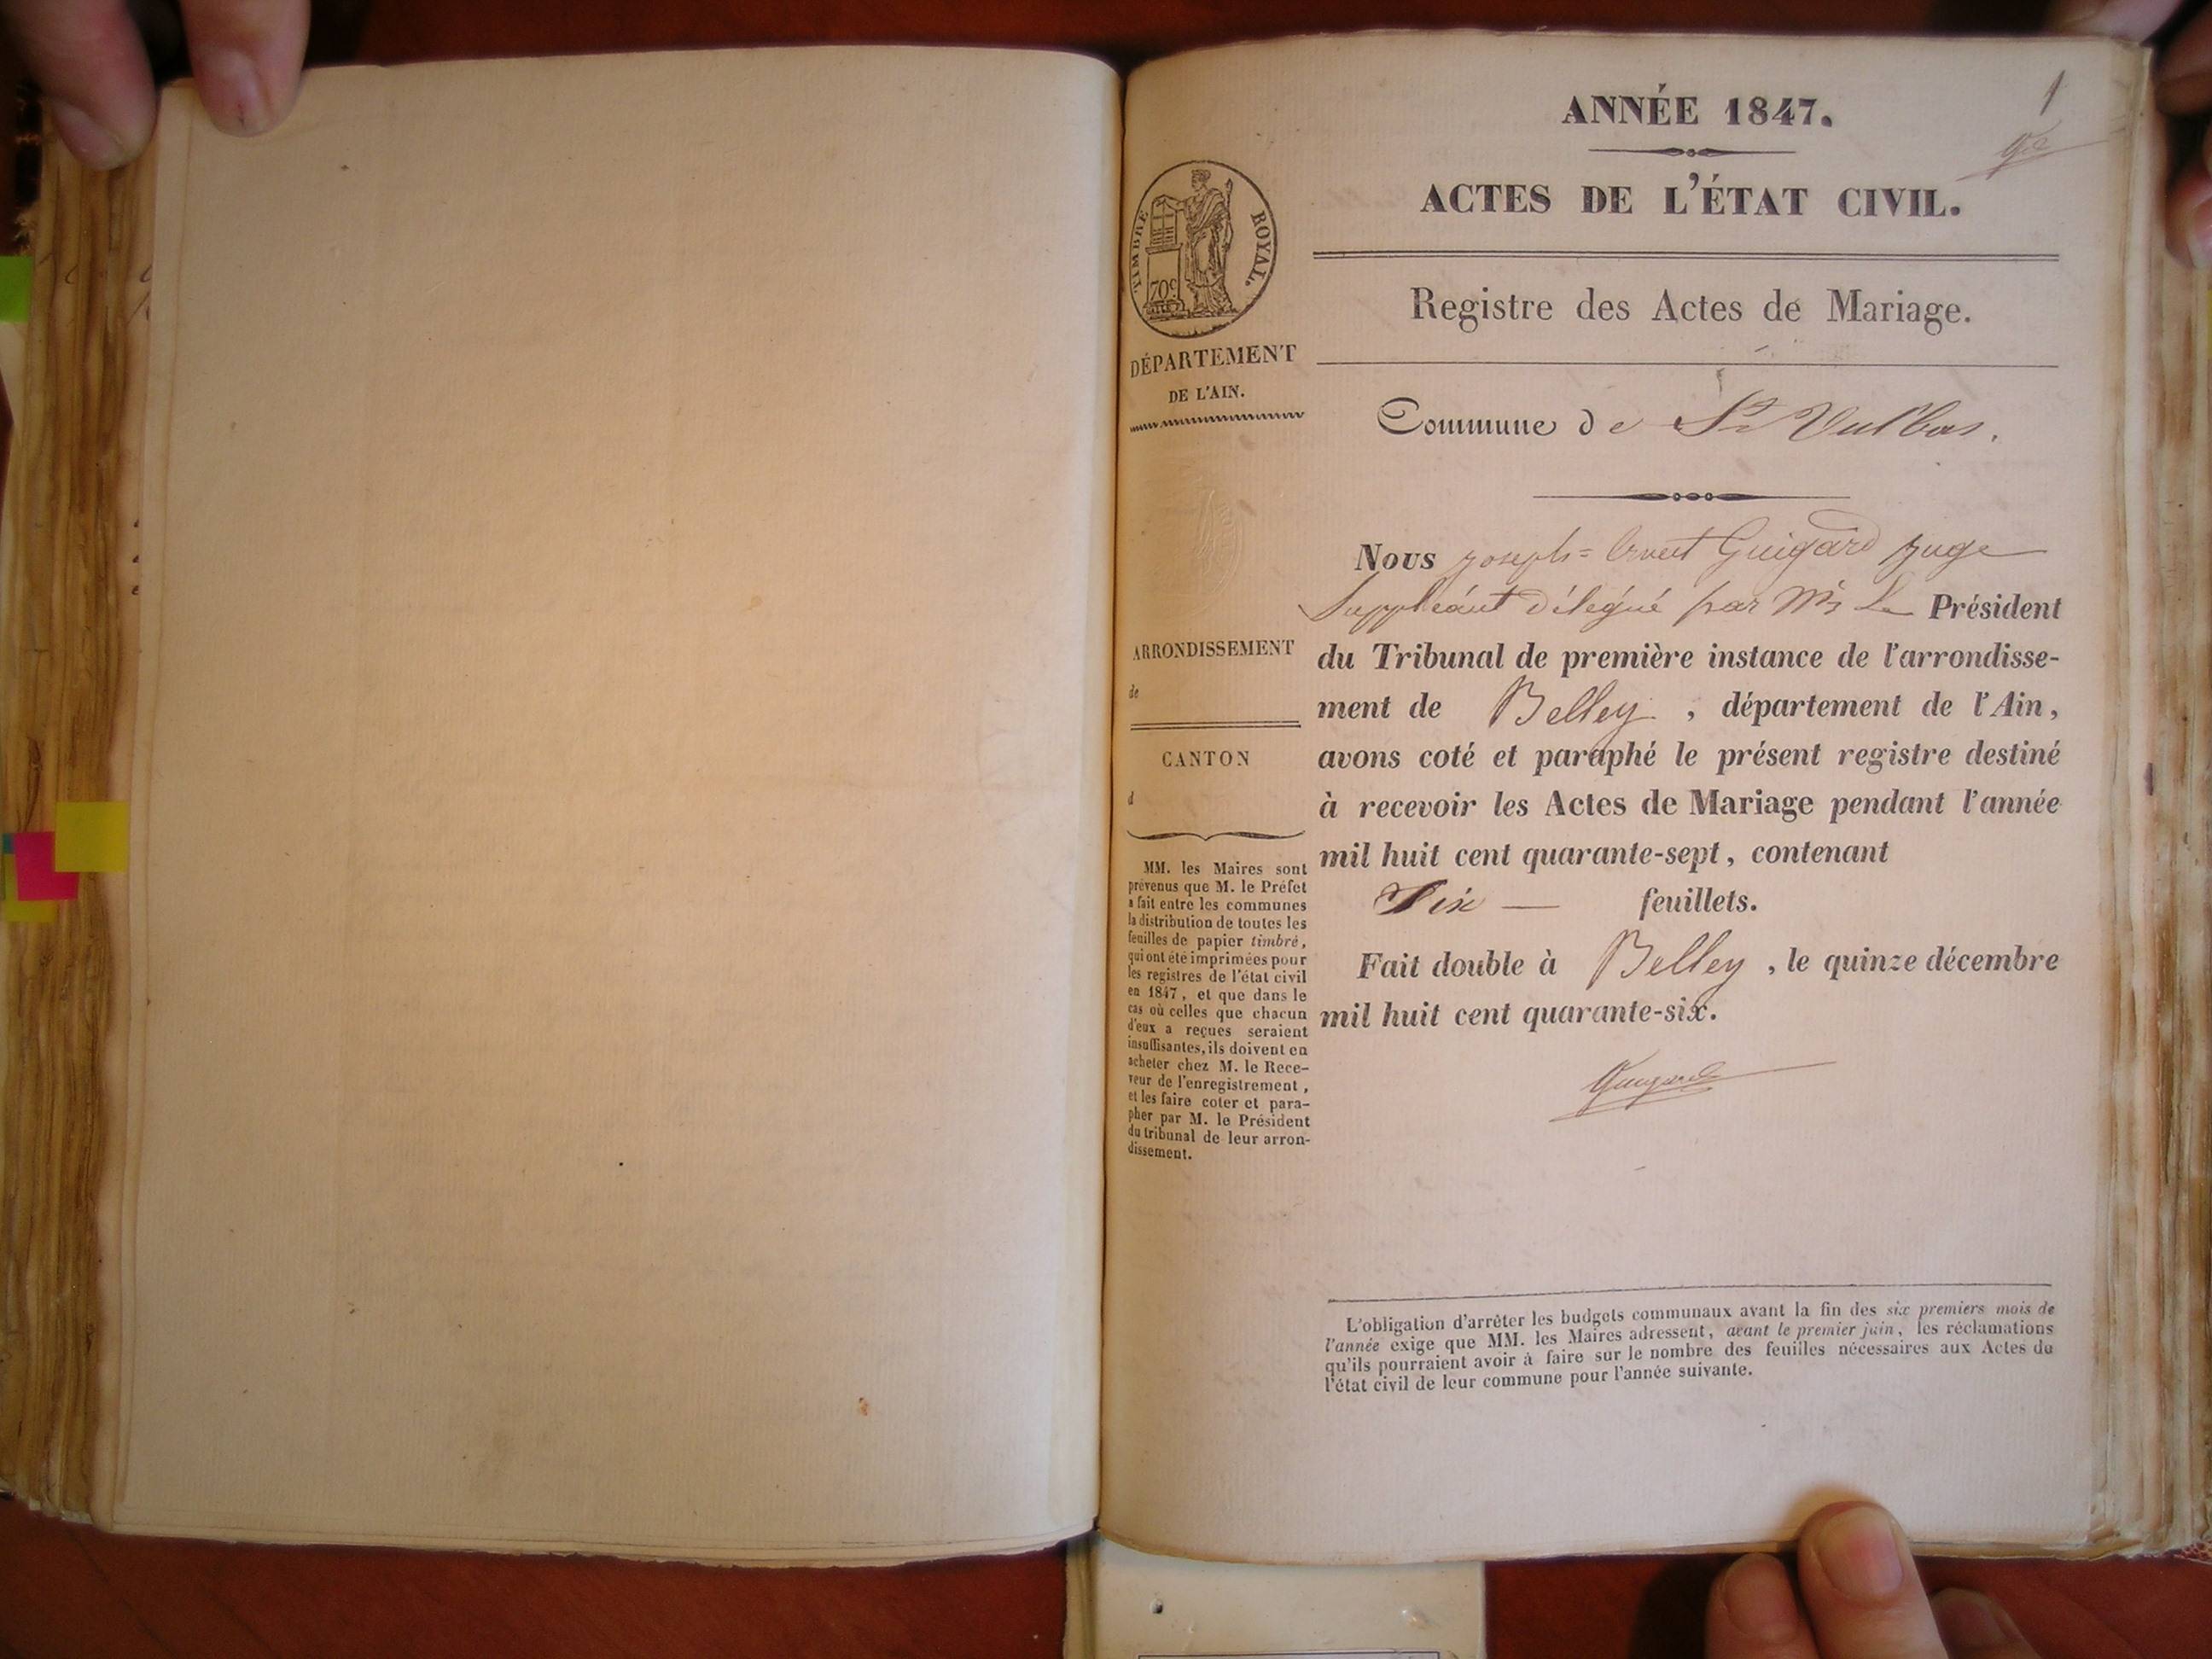 1
ANNÉE 1847.
ACTES DE L'ÉTAT CIVIL.
Registre des Actes de Mariage.
Commune de St Vulbas.
Nous joseph= Guigard juge
Suppléant délégué par Mr Le Président
du Tribunal de première instance de l'arrondisse-
ment de Belley, département de l'Ain,
avons coté et paraphé le présent registre destiné
à recevoir les Actes de Mariage pendant l'année
mil huit cent quarante-sept, contenant
feuillets.
Fait double à Belley, le quinze décembre
mil huit cent quarante-six.
Guigard
L'obligation d'arrêter les budgets communaux avant la fin des six premiers mois de
l'année exige que MM. les Maires adressent, avant le premier juin, les réclamations
qu'ils pourraient avoir à faire sur le nombre des feuilles nécessaires aux Actes du
l'état civil de leur commune pour l'année suivante.
TIMBRE ROYAL.
70c
DÉPARTEMENT
DE L'AIN.
ARRONDISSEMENT
de
CANTON
d
MM. les Maires sont
prévenus que M. le Préfet
a fait entre les communes
la distribution de toutes les
feuilles de papier timbré,
qui ont été imprimées pour
les registres de l'état civil
en 1847, et que dans le
cas où celles que chacun
d'eux a reçues seraient
insuffisantes, ils doivent en
acheter chez M. le Rece-
veur de l'enregistrement,
et les faire coter et para-
pher par M. le Président
du tribunal de leur arron-
dissement.